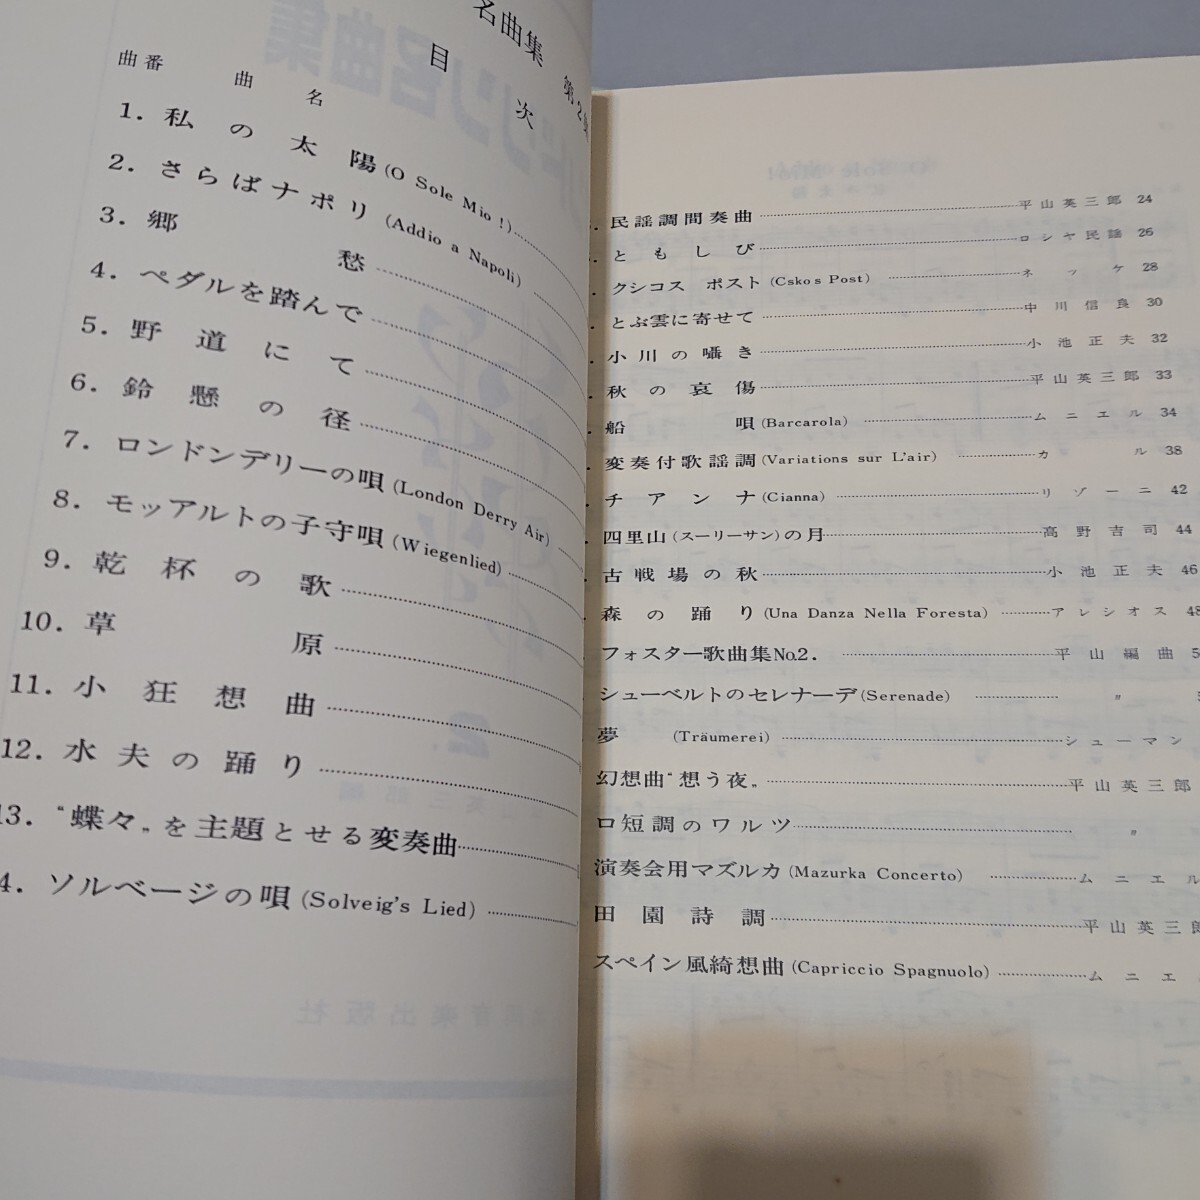 名曲集 第2集
目次
曲番 曲名
1. 私の太陽 (O Sole Mio!)
2. さらばナポリ (Addio a Napoli)
3. 郷愁
4. ペダルを踏んで
5. 野道にて
6. 鈴懸の径
7. ロンドンデリーの唄 (London Derry Air)
8. モッアルトの子守唄 (Wiegenlied)
9. 乾杯の歌
10. 草原
11. 小狂想曲
12. 水夫の踊り
13. “蝶々„を主題とせる変奏曲
4. ソルベージの唄 (Solveig's Lied)
民謡調間奏曲 平山英三郎 24
ともしび ロシヤ民謡 26
クシコス ポスト (Csko s Post) ネッケ 28
とぶ雲に寄せて 中川信良 30
小川の囁き 小池正夫 32
秋の哀傷 平山英三郎 33
船唄 (Barcarola) ムニエル 34
変奏付歌謡調 (Variations sur L'air) カル 38
チアンナ (Cianna) リゾーニ 42
四里山 (スーリーサン) の月 高野吉司 44
古戦場の秋 小池正夫 46
森の踊り (Una Danza Nella Foresta) アレシオス 48
フォスター歌曲集No.2. 平山編曲 5
シューベルトのセレナーデ (Serenade) 〃
夢 (Träumerei) シューマン
幻想曲“想う夜„ 平山英三郎
ロ短調のワルツ 〃
演奏会用マズルカ (Mazurka Concerto) ムニエル
田園詩調 平山英三郎
スペイン風綺想曲 (Capriccio Spagnuolo) ムニエ